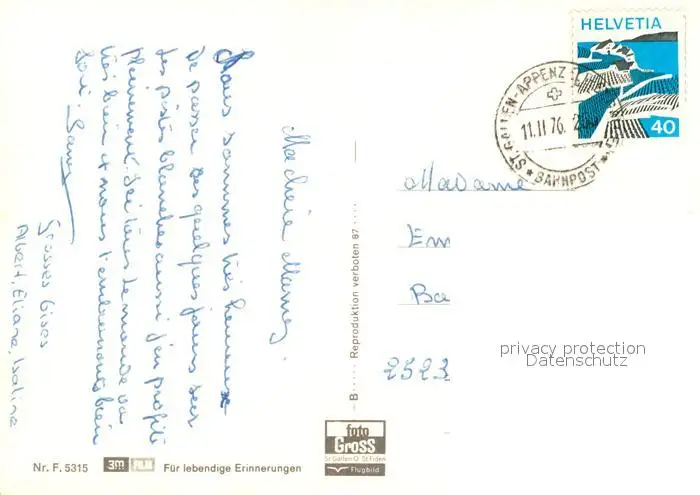 Ma chère Mamy.
Nous sommes très heureuse
de passer ces quelques jours sur
les pistes blanches aussi j'en profite
pleinement. Ici tous le monde va
très bien et nous t'embrassons bien
fort.
Grosses Bises
Albert, Eliane,
HELVETIA
40
ST. GALLEN-APPENZELL
11.II.76.
BAHNPOST
Madame
Em
Ba
2523
privacy protection
Datenschutz
B Reproduktion verboten 87
foto
Gross
St Gallen O. St Fiden
Flugbild
Nr. F. 5315 3m FILM Für lebendige Erinnerungen